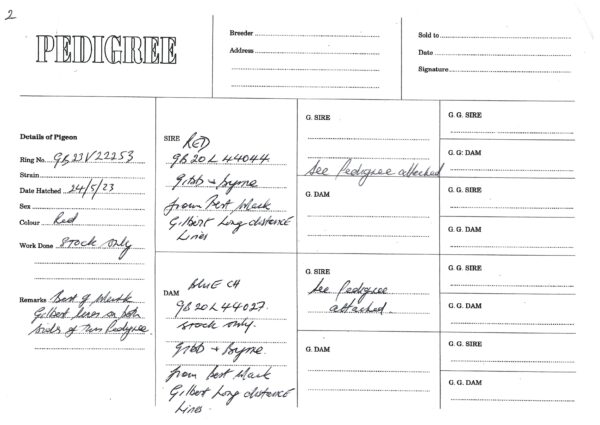 2
PEDIGREE
Breeder
Address
Sold to
Date
Signature
Details of Pigeon
Ring No. GB23V22253
Strain
Date Hatched 24/5/23
Sex
Colour Red
Work Done Stock only
Remarks Best of Mark
Gilbert lines on both
sides of this Pedigree.
SIRE RED
GB20L44044
Gibb & Byrne
from Best Mark
Gilbert Long distance
Lines
DAM BLUE CH
GB20L44027.
Stock only.
Gibb & Byrne.
from best Mark
Gilbert Long distance
Lines.
G. SIRE
See Pedigree attached
G. DAM
G. SIRE
See Pedigree
attached.
G. DAM
G. G. SIRE
G. G. DAM
G. G. SIRE
G. G. DAM
G. G. SIRE
G. G. DAM
G. G. SIRE
G. G. DAM